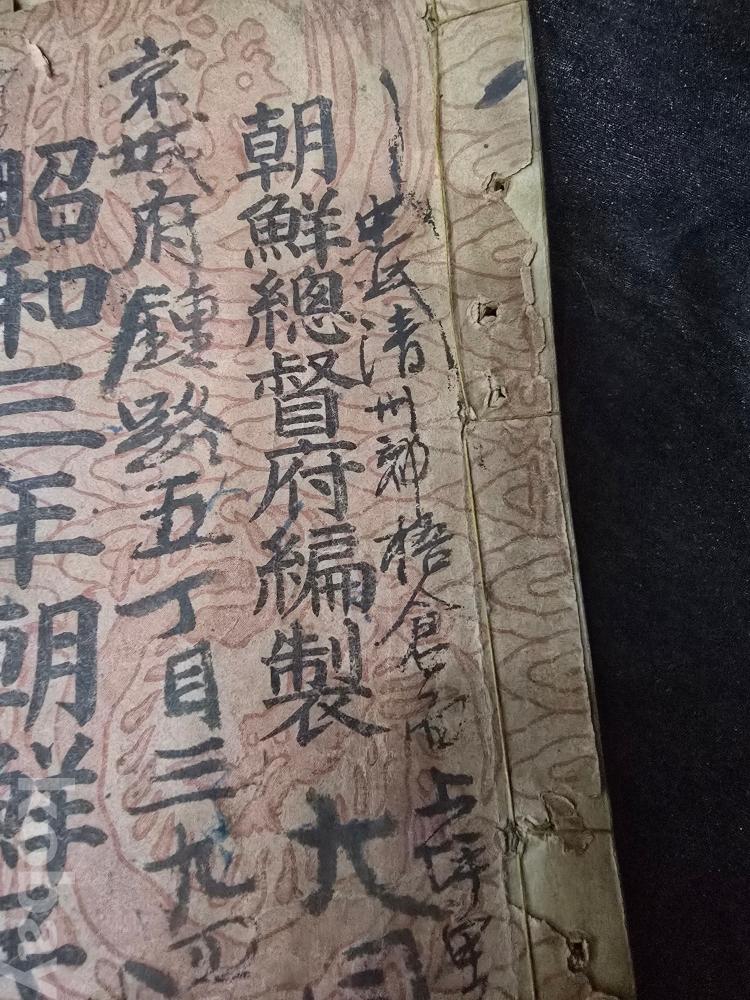 忠北清州郡梧倉面上坪里
朝鮮總督府編製
大
京城府鍾路五丁目三九
昭和三年朝鮮